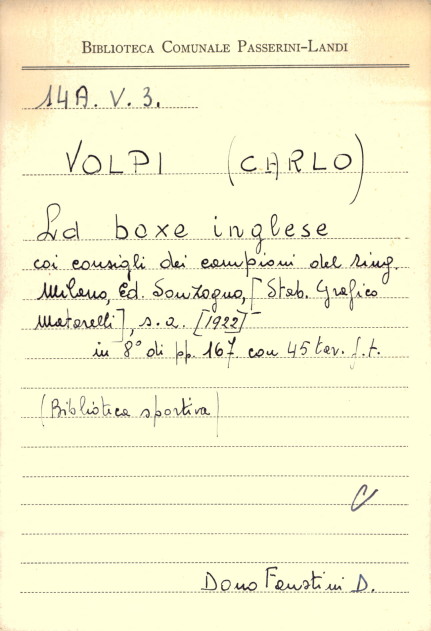 BIBLIOTECA COMUNALE PASSERINI-LANDI
14A. V. 3.
VOLPI (CARLO)
La boxe inglese
coi consigli dei campioni del ring.
Milano, Ed. Sonzogno, [Stab. Grafico
Matarelli], s. a. [1922]
in 8° di pp. 167 con 45 tav. f. t.
(Biblioteca sportiva)
Dono Faustini D.